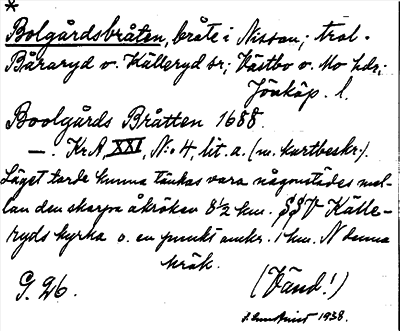 *
Bolgårdsbråten, bråte i Nissan; trol.
Båraryd o. Källeryd sr; Västbo o. Mo hdr;
Jönköp. l.
Boolgårds Bråtten 1688.
—. KrA, XXI, N:o 4, lit. a. (m. kartbeskr.).
Läget torde kunna tänkas vara någonstädes mel-
lan den skarpa åkröken 8½ km. SSV Källe-
ryds kyrka o. en punkt omkr. 1 km. N denna
krök.
G. 26. (Vänd!)
1938.